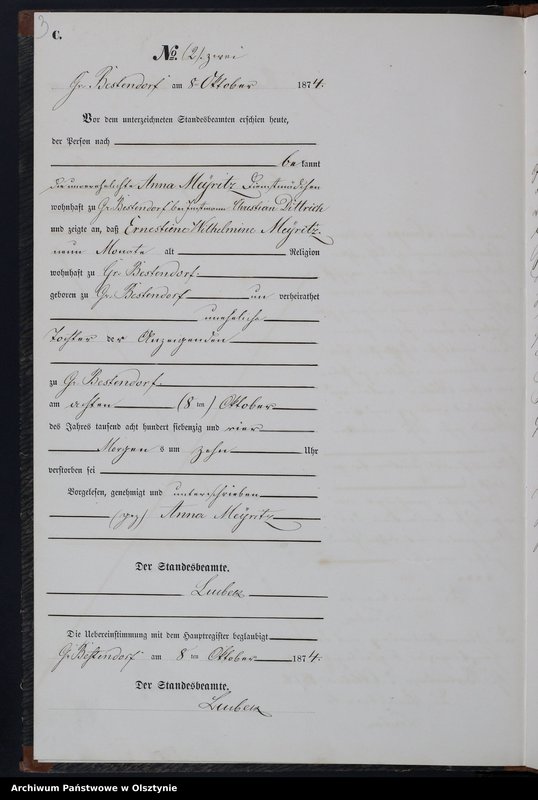 3
C.
No. (2). zwei
Gr. Bestendorf am 8. Oktober 1874.
Vor dem unterzeichneten Standesbeamten erschien heute,
der Person nach
be kannt
die unverehelichte Anna Meÿritz Dienstmädchen
wohnhaft zu Gr. Bestendorf bei Instmann Christian Dittrich
und zeigte an, daß Ernestiene Wilhelmine Meÿritz.
neun Monate alt Religion
wohnhaft zu Gr. Bestendorf.
geboren zu Gr. Bestendorf un verheirathet
uneheliche
Tochter der Anzeigenden
zu Gr. Bestendorf.
am achten (8 ten) Oktober
des Jahres tausend acht hundert siebenzig und vier
Morgen s um zehn Uhr
verstorben sei
Vorgelesen, genehmigt und unterschrieben
(gez) Anna Meÿritz
Der Standesbeamte.
Lubek
Die Uebereinstimmung mit dem Hauptregister beglaubigt
Gr. Bestendorf am 8 ten Oktober 1874.
Der Standesbeamte.
Lubek
Archiwum Państwowe w Olsztynie